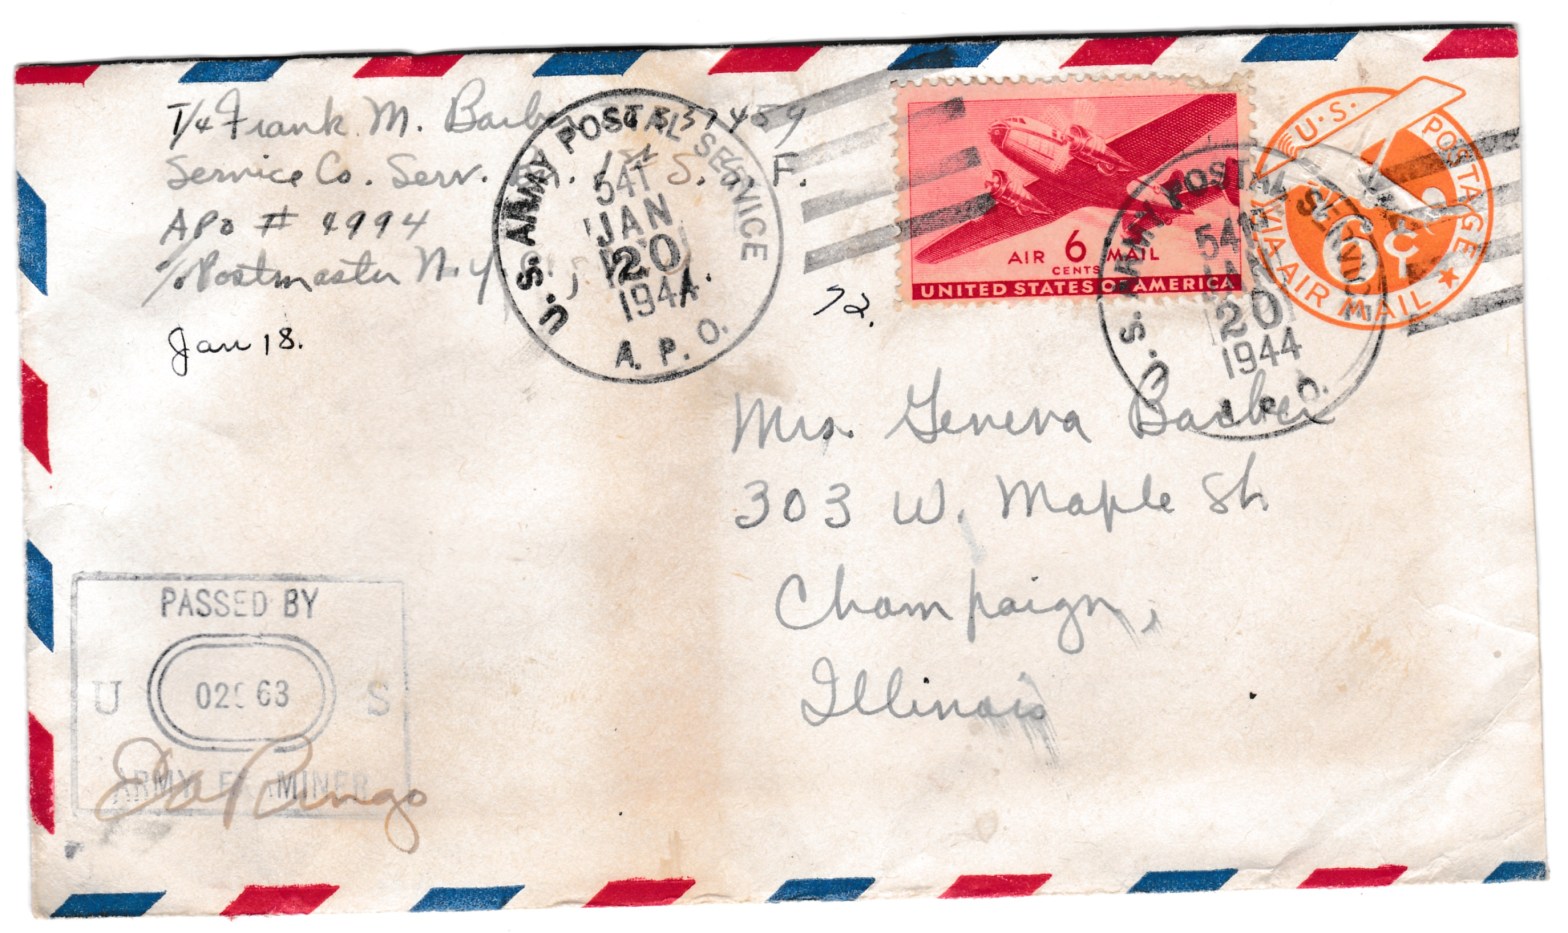 T/4 Frank M. Barber 7459
Service Co. Serv. 1st S. S. F.
APO # 4994
c/o Postmaster N.Y.
Jan 18.
U. S. ARMY POSTAL SERVICE
541
JAN
20
1944
A. P. O.
72.
AIR 6 MAIL
CENTS
UNITED STATES OF AMERICA
U.S. POSTAGE
6c
VIA AIR MAIL
U. S. ARMY POSTAL SERVICE
541
JAN
20
1944
A. P. O.
Mrs. Geneva Barber
303 W. Maple St.
Champaign,
Illinois
PASSED BY
U S
ARMY EXAMINER